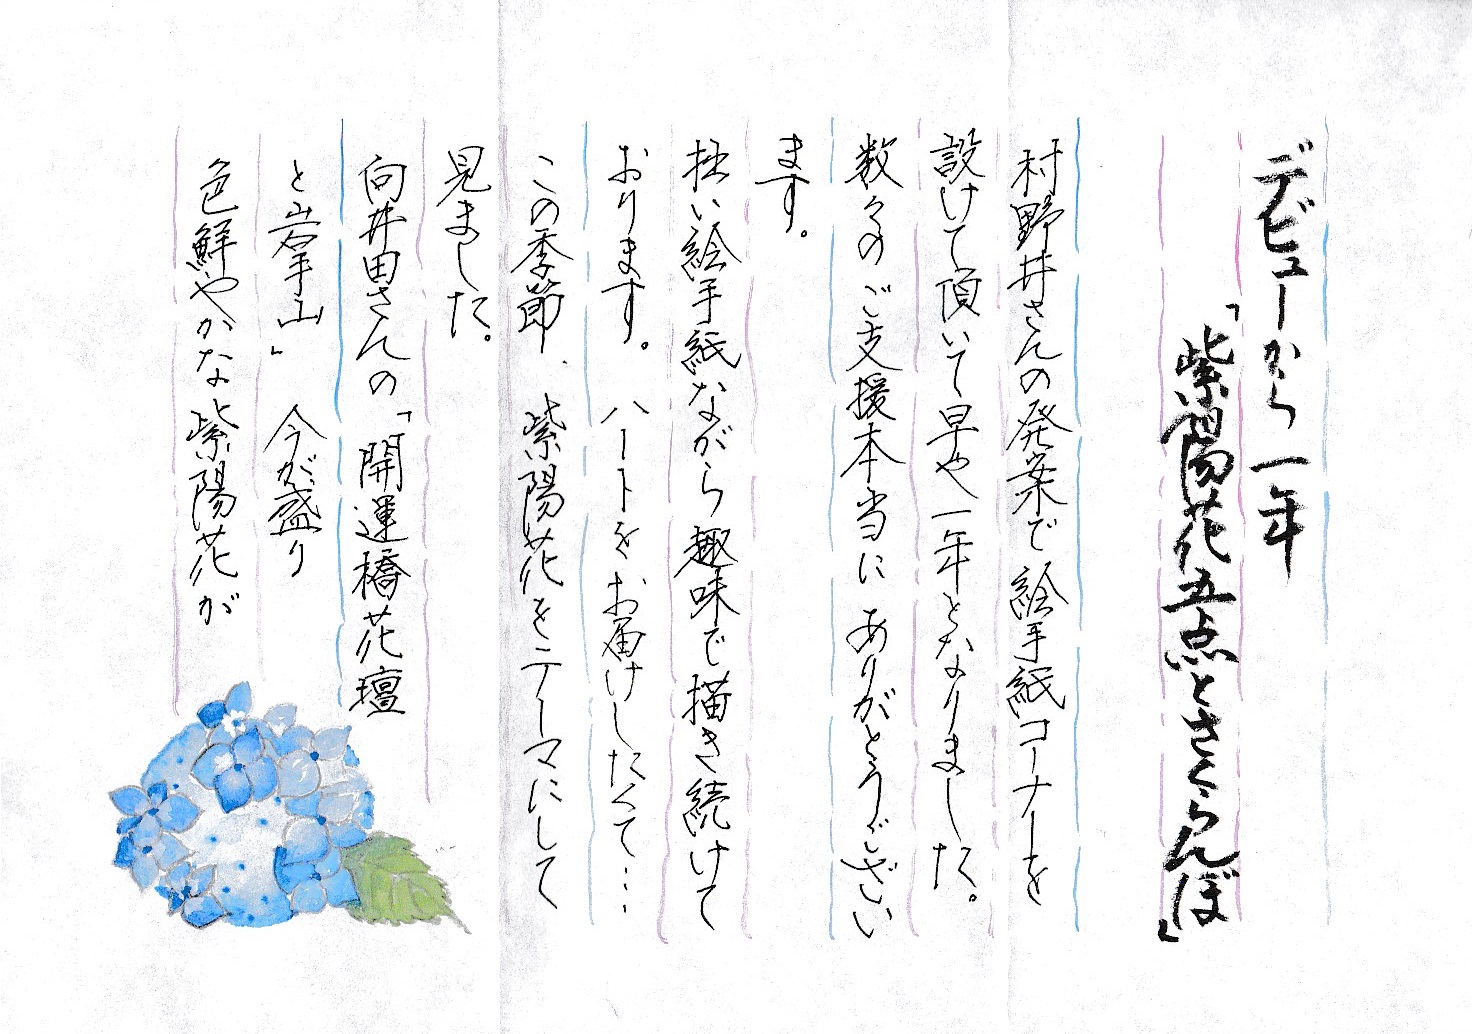 デビューから一年
「紫陽花五点とさくらんぼ」
村野井さんの発案で絵手紙コーナーを
設けて頂いて早や一年となりました。
数々のご支援本当にありがとうござい
ます。
拙い絵手紙ながら趣味で描き続けて
おります。ハートをお届けしたくて…
この季節、紫陽花をテーマにして
見ました。
向井田さんの「開運橋花壇
と岩手山」今が盛り
色鮮やかな紫陽花が